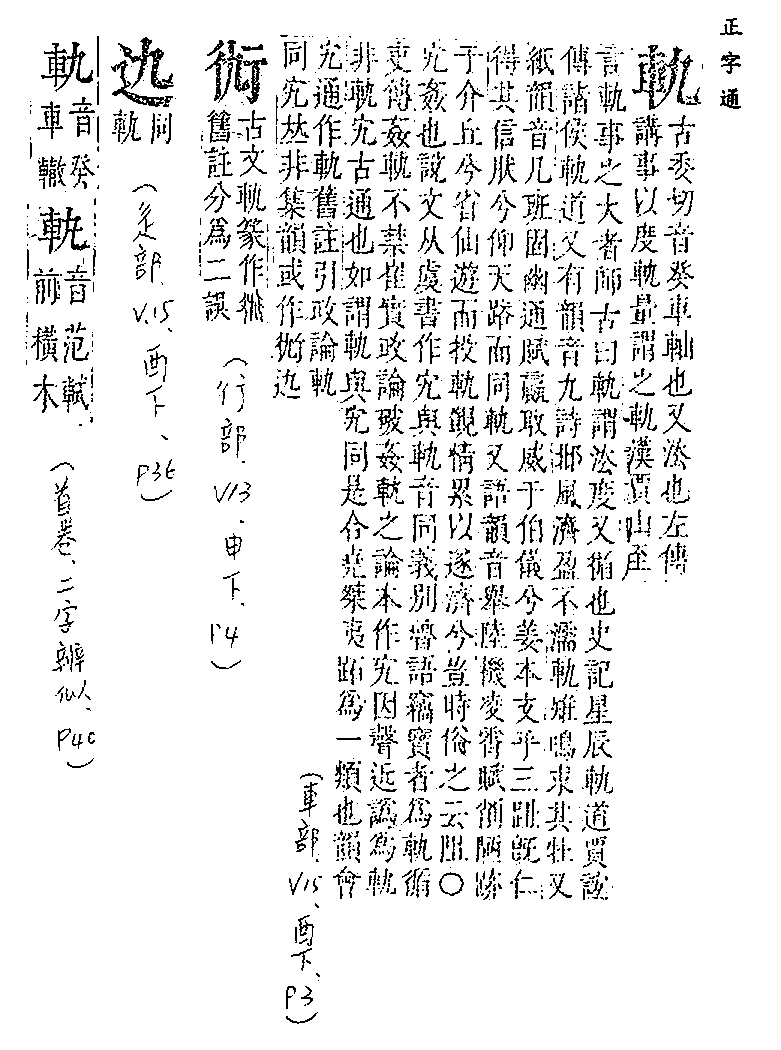 正字通
軌
古委切音癸車軸也又法也左傳
講事以度軌量謂之軌漢賈山至
言軌事之大者師古曰軌謂法度又循也史記星辰軌道賈誼
傳諸侯軌道又有韻音九詩邶風濟盈不濡軌雉鳴求其牡又
紙韻音几班固幽通賦嬴取威于伯儀兮姜本支乎三趾旣仁
得其信然兮仰天路而同軌又語韻音舉陸機凌霄賦削陋跡
于介丘兮省仙遊而投軌覬情累以遂濟兮豈時俗之云阻○
宄姦也說文从虞書作宄與軌音同義別魯語竊寶者爲軌循
吏傳姦軌不禁崔寔政論破姦軌之論本作宄因聲近譌爲軌
非軌宄古通也如謂軌與宄同是合堯桀夷跖爲一類也韻會
宄通作軌舊註引政論軌
同宄𠀤非集韻或作𨋬边
(車部、V15、酉下、P3)
衐
古文軌篆作
舊註分爲二誤
(行部、V13、申下、P4)
边
同
軌
(辵部、V.15、酉下、P36)
軌音癸
車轍
軓音范軾
前橫木
(首卷、二字辨似、P40)